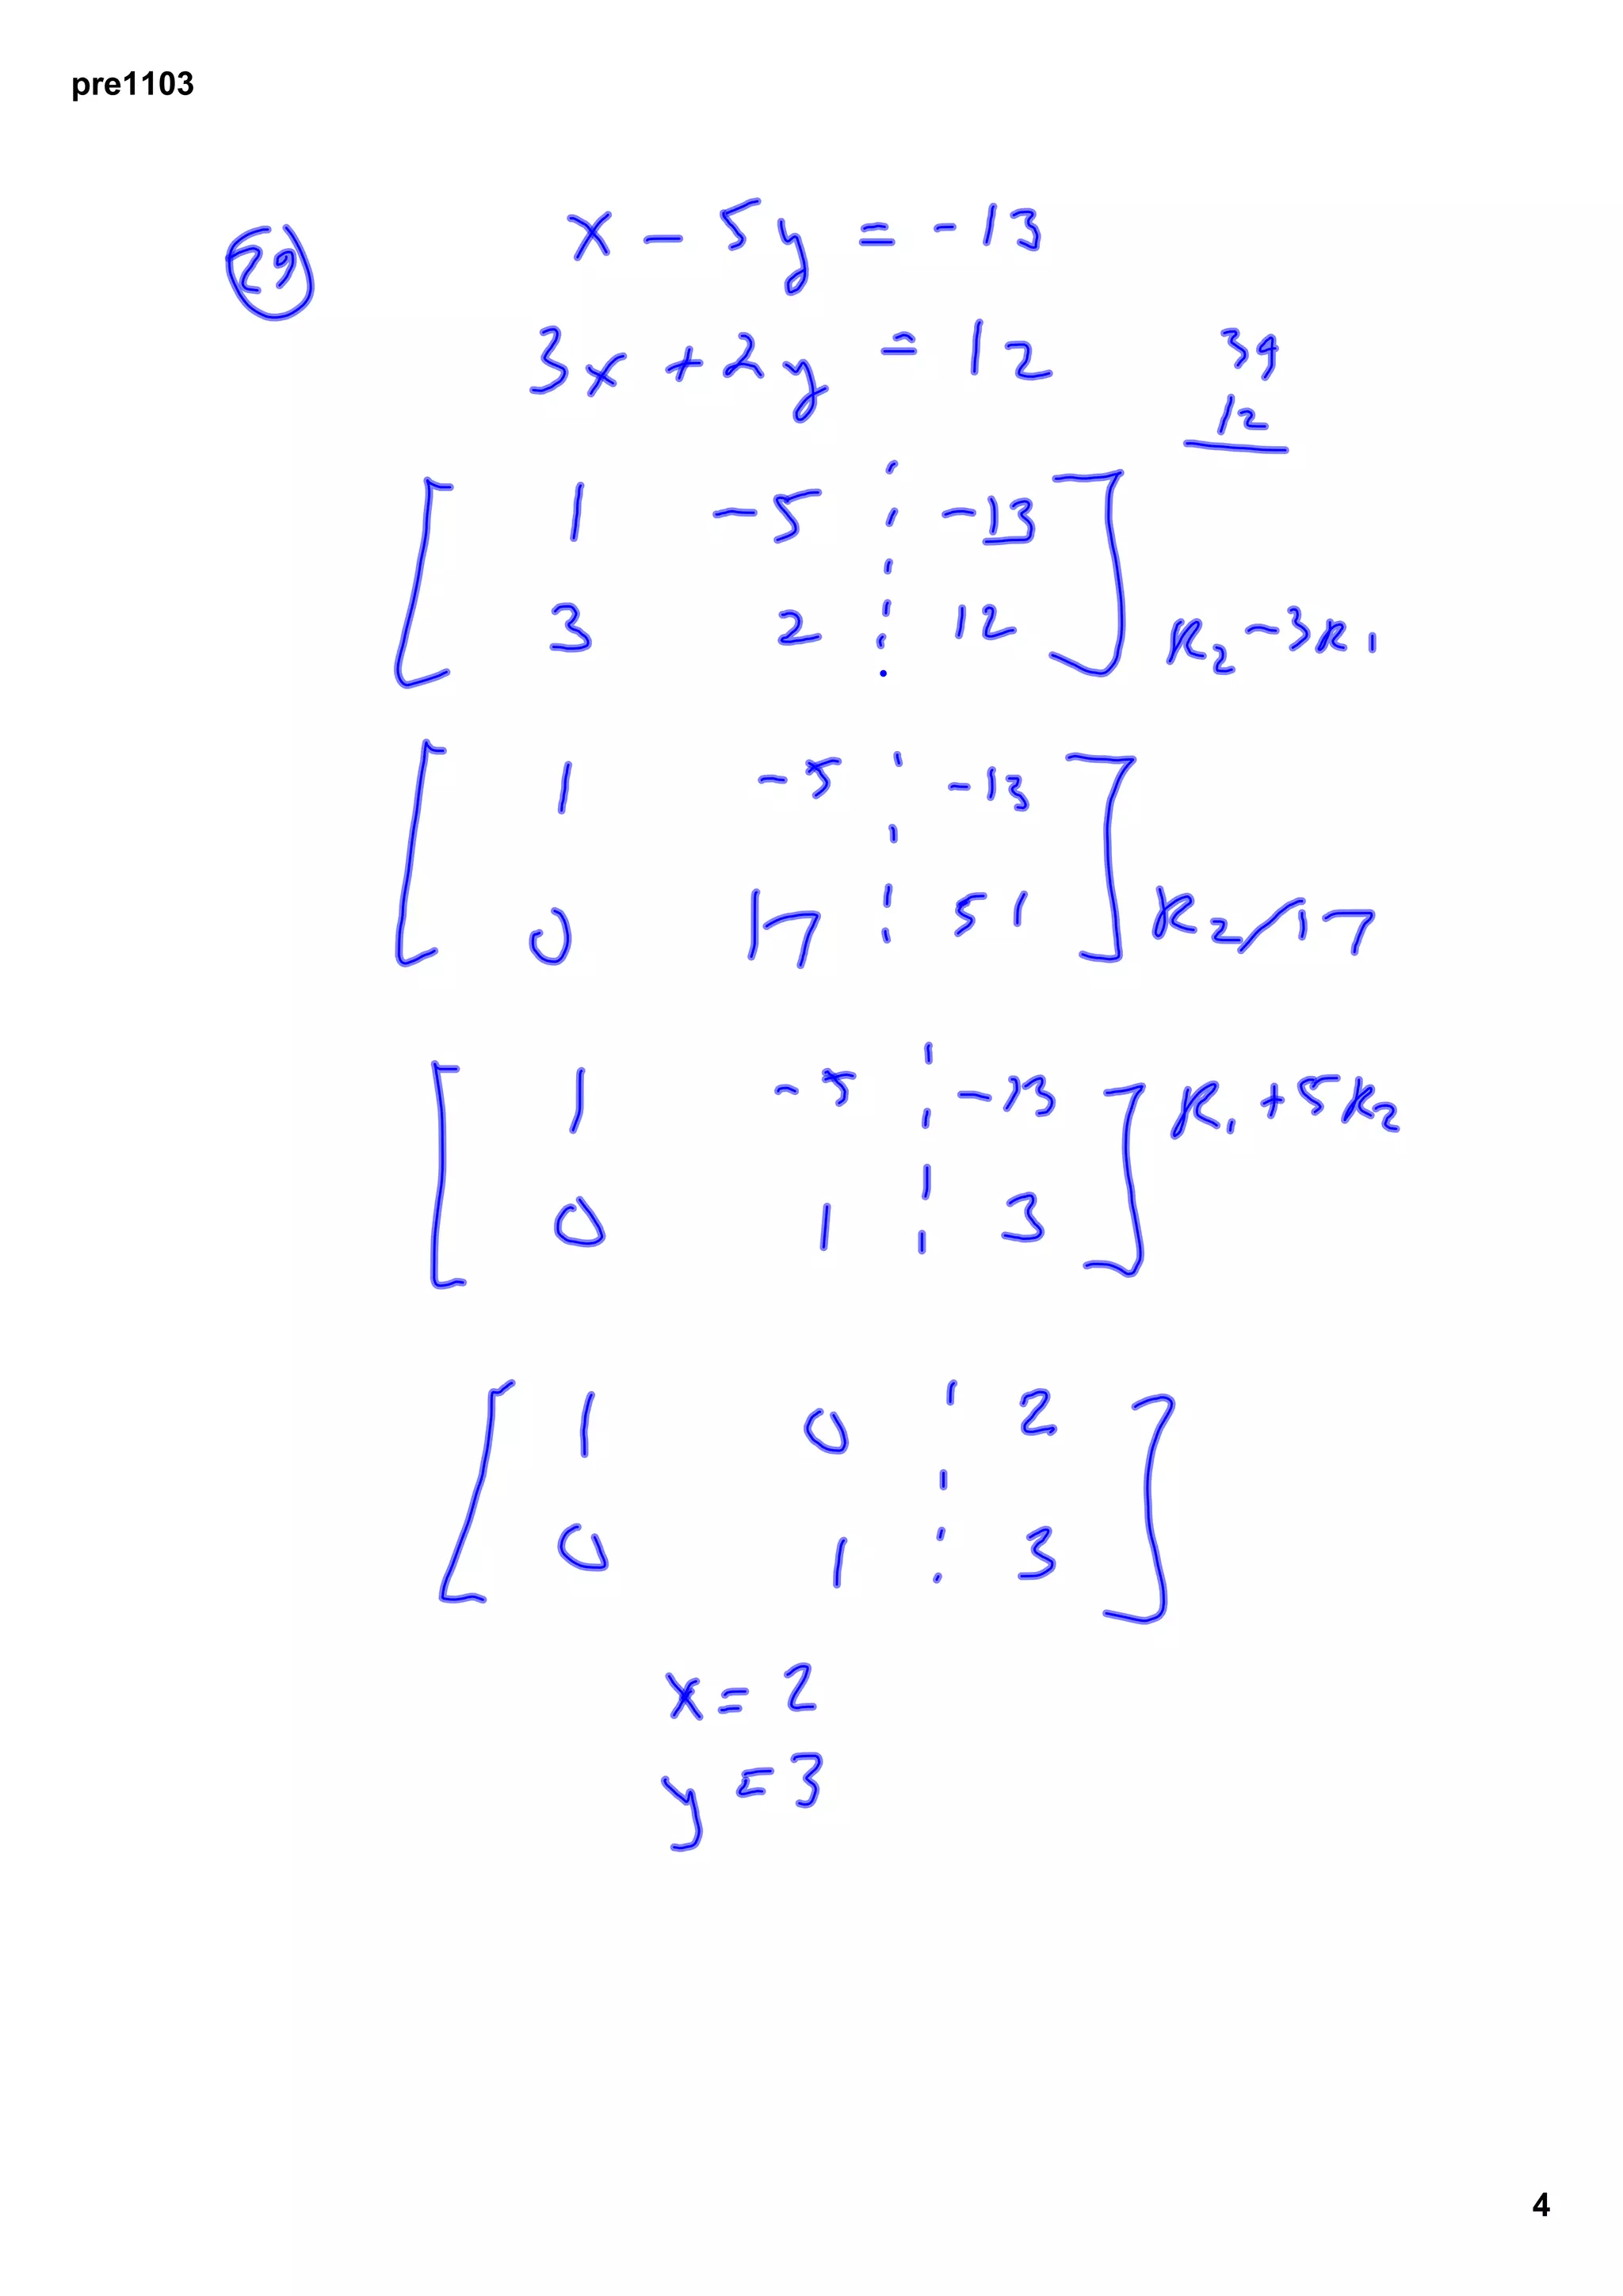 pre1103
29
x - 5y = -13
3x + 2y = 12
39
12
1 -5 -13
3 2 12 R2 - 3R1
1 -5 -13
0 17 51 R2/17
1 -5 -13 R1 + 5R2
0 1 3
1 0 2
0 1 3
x = 2
y = 3
4